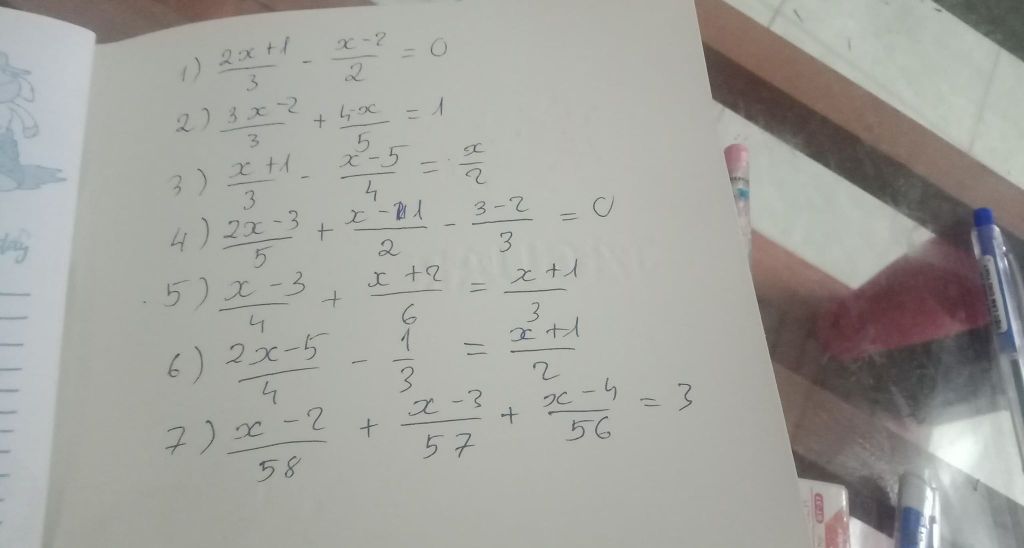 1) (2x+1)/3 - (x-2)/2 = 0
2) (3x-2)/3 + (4-x)/5 = 1
3) (x+1)/3 - (x-5)/4 = x/2
4) (2x-3)/5 + (x-1)/2 - (3-2)/3 = 0
5) (x-3)/4 + (x+2)/6 = (x+1)/3
6) (2x-5)/4 - 1/3 = (x+1)/2
7) (x-2)/58 + (x-3)/57 + (x-4)/56 = 3